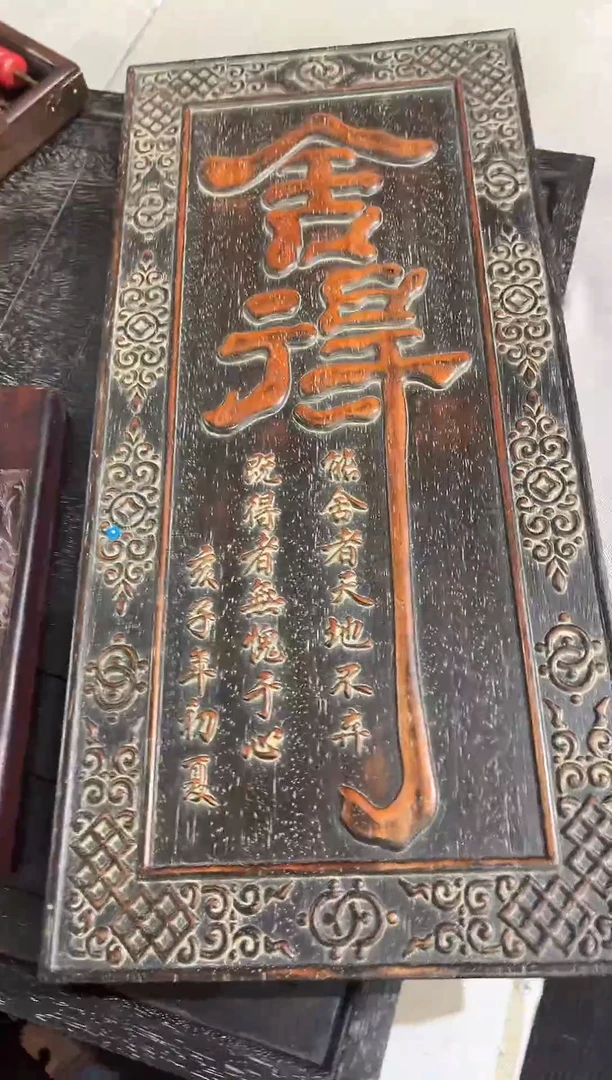 舍得
能舍者天地不弃
既得者無愧于心
亥子年初夏